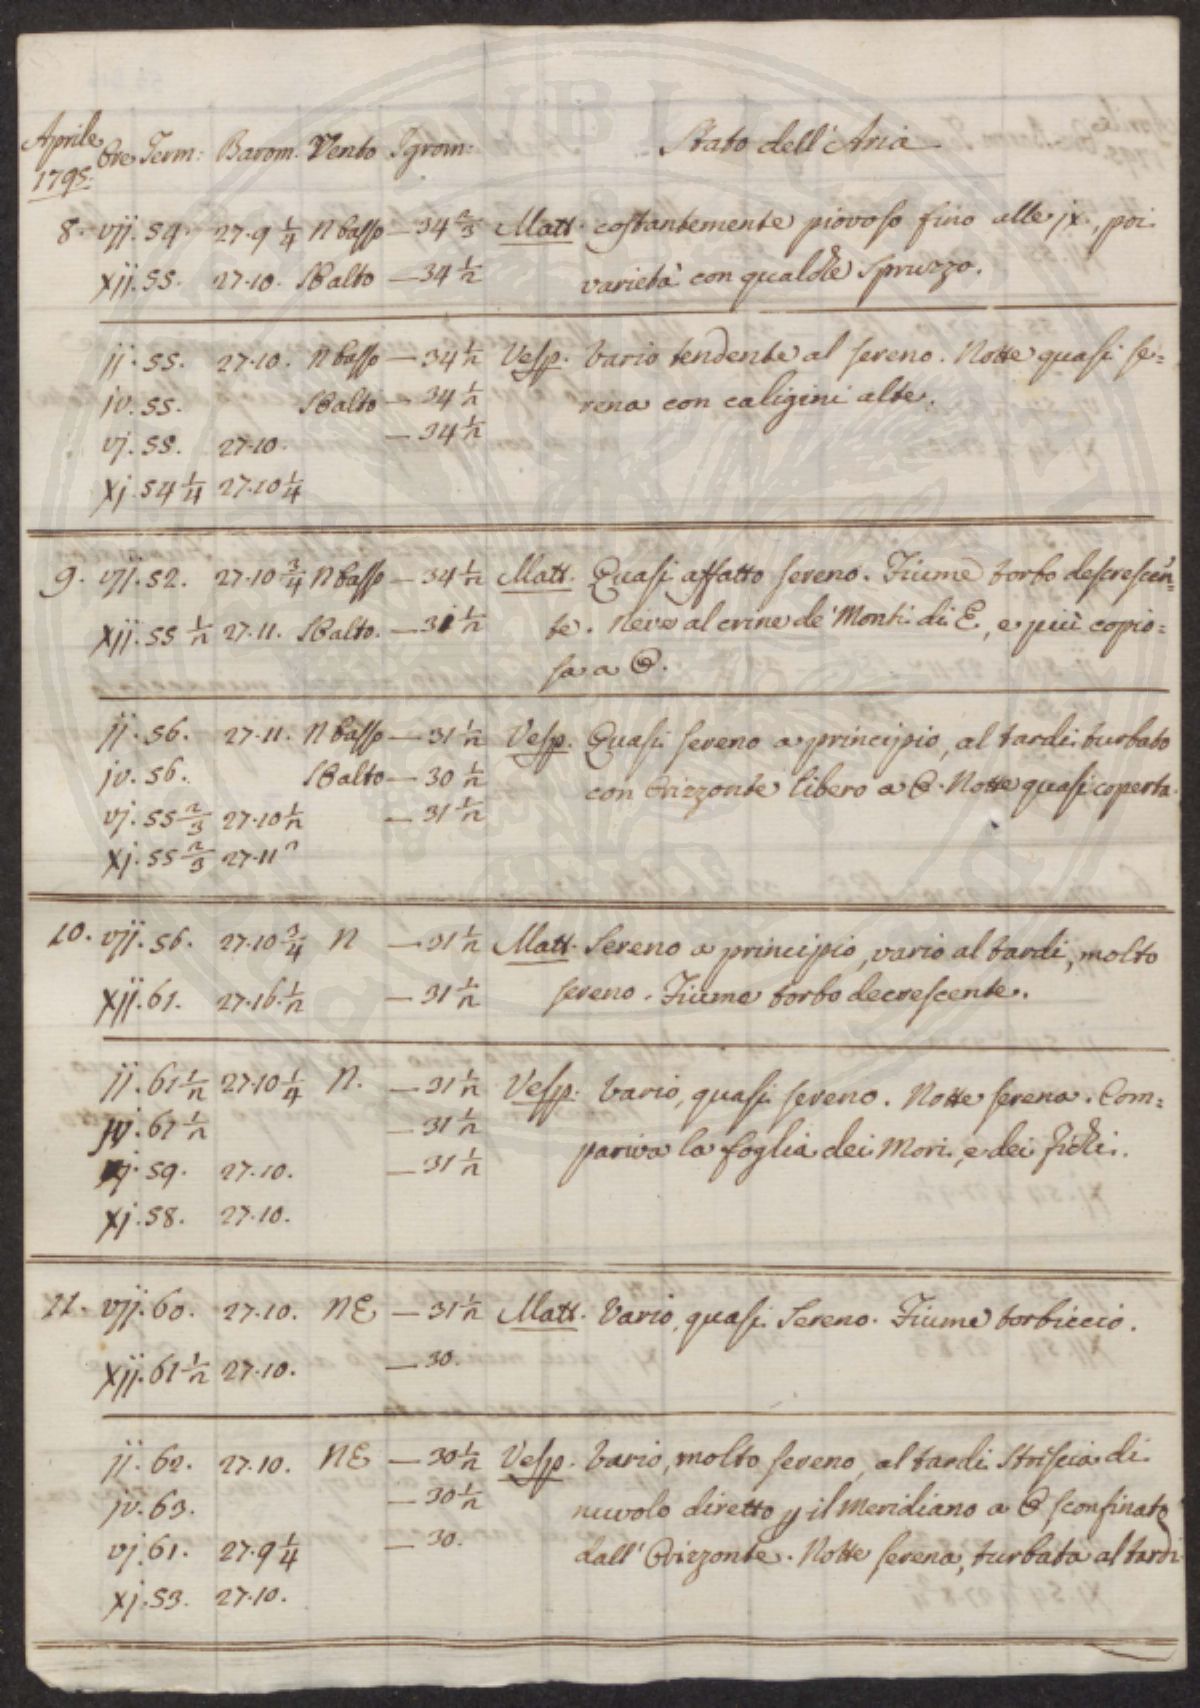 Aprile 1795. Ore Term: Barom. Vento Igrom: Stato dell'Aria
8. vij. 54. 27.9 1/4 N basso — 34 2/3 Matt. costantemente piovoso fino alle jx., poi
xij. 55. 27.10. SE alto — 34 1/2 varietà con qualche spruzzo.
ij. 55. 27.10. N basso — 34 1/2 Vesp. Vario tendente al sereno. Notte quasi se=
iv. 55. SE alto — 34 1/2 rena con caligini alte.
vj. 55. 27.10. — 34 1/2
xj. 54 1/4 27.10 1/4
9. vij. 52. 27.10 3/4 N basso — 34 1/2 Matt. Quasi affatto sereno. Fiume torbo descrescen=
xij. 55 1/2 27.11. SE alto. — 31 1/2 te. Neve al crine de' Monti di E, e più copio=
sa a O.
ij. 56. 27.11. N basso — 31 1/2 Vesp. Quasi sereno a principio, al tardi turbato
iv. 56. SE alto — 30 1/2 con Orizzonte libero a O. Notte quasi coperta.
vj. 55 2/3 27.10 1/2 — 31 1/2
xj. 55 2/3 27.11
10. vij. 56. 27.10 3/4 N — 31 1/2 Matt. Sereno a principio, vario al tardi, molto
xij. 61. 27.10. 1/2 — 31 1/2 sereno. Fiume torbo decrescente.
ij. 61 1/2 27.10 1/4 N. — 31 1/2 Vesp. Vario, quasi sereno. Notte serena. Com=
iv. 61 1/2 — 31 1/2 pariva la foglia dei Mori, e dei fichi.
vj. 59. 27.10. — 31 1/2
xj. 58. 27.10.
11. vij. 60. 27.10. NE — 31 1/2 Matt. Vario, quasi Sereno. Fiume torbiccio.
xij. 61 1/2 27.10. — 30.
ij. 62. 27.10. NE — 30 1/2 Vesp. Vario, molto sereno, al tardi striscia di
iv. 63. — 30 1/2 nuvolo diretto p il Meridiano a O sconfinato
vj. 61. 27.9 1/4 — 30. dall'Orizzonte. Notte serena, turbata al tardi
xj. 53. 27.10.